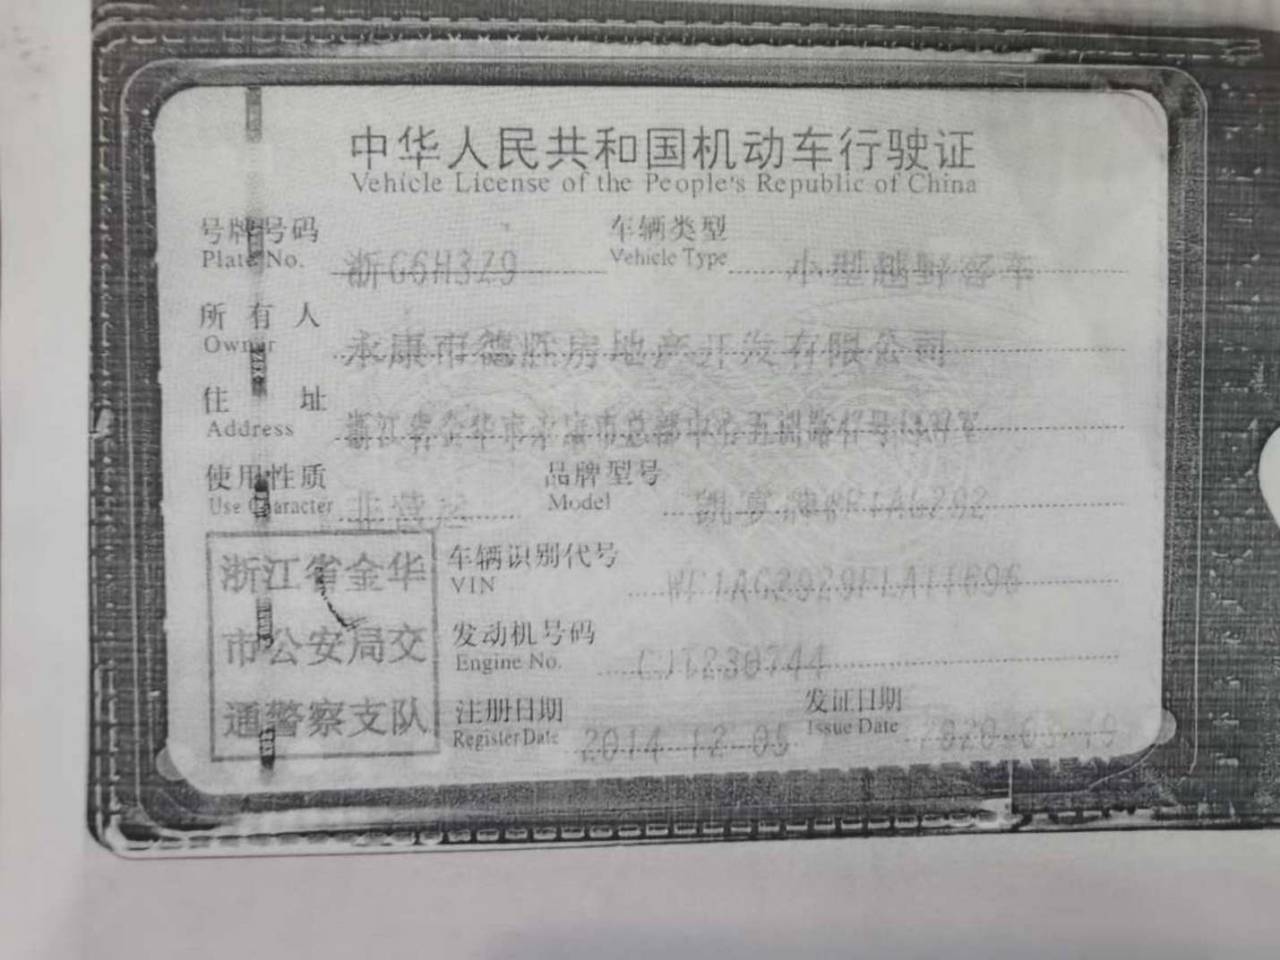 中华人民共和国机动车行驶证
Vehicle License of the People's Republic of China
号牌号码 车辆类型
Plate No. 浙G6H3Z9 Vehicle Type 小型越野客车
所有人
Owner 永康市德 房地产开发有限公司
住址
Address 浙江省金华市永康市总部中心五湖路
使用性质 品牌型号
Use Character 非营运 Model
浙江省金华 车辆识别代号
VIN
市公安局交 发动机号码
Engine No. CJT230744
通警察支队 注册日期 发证日期
Register Date 2014-12-05 Issue Date 2020-03-19